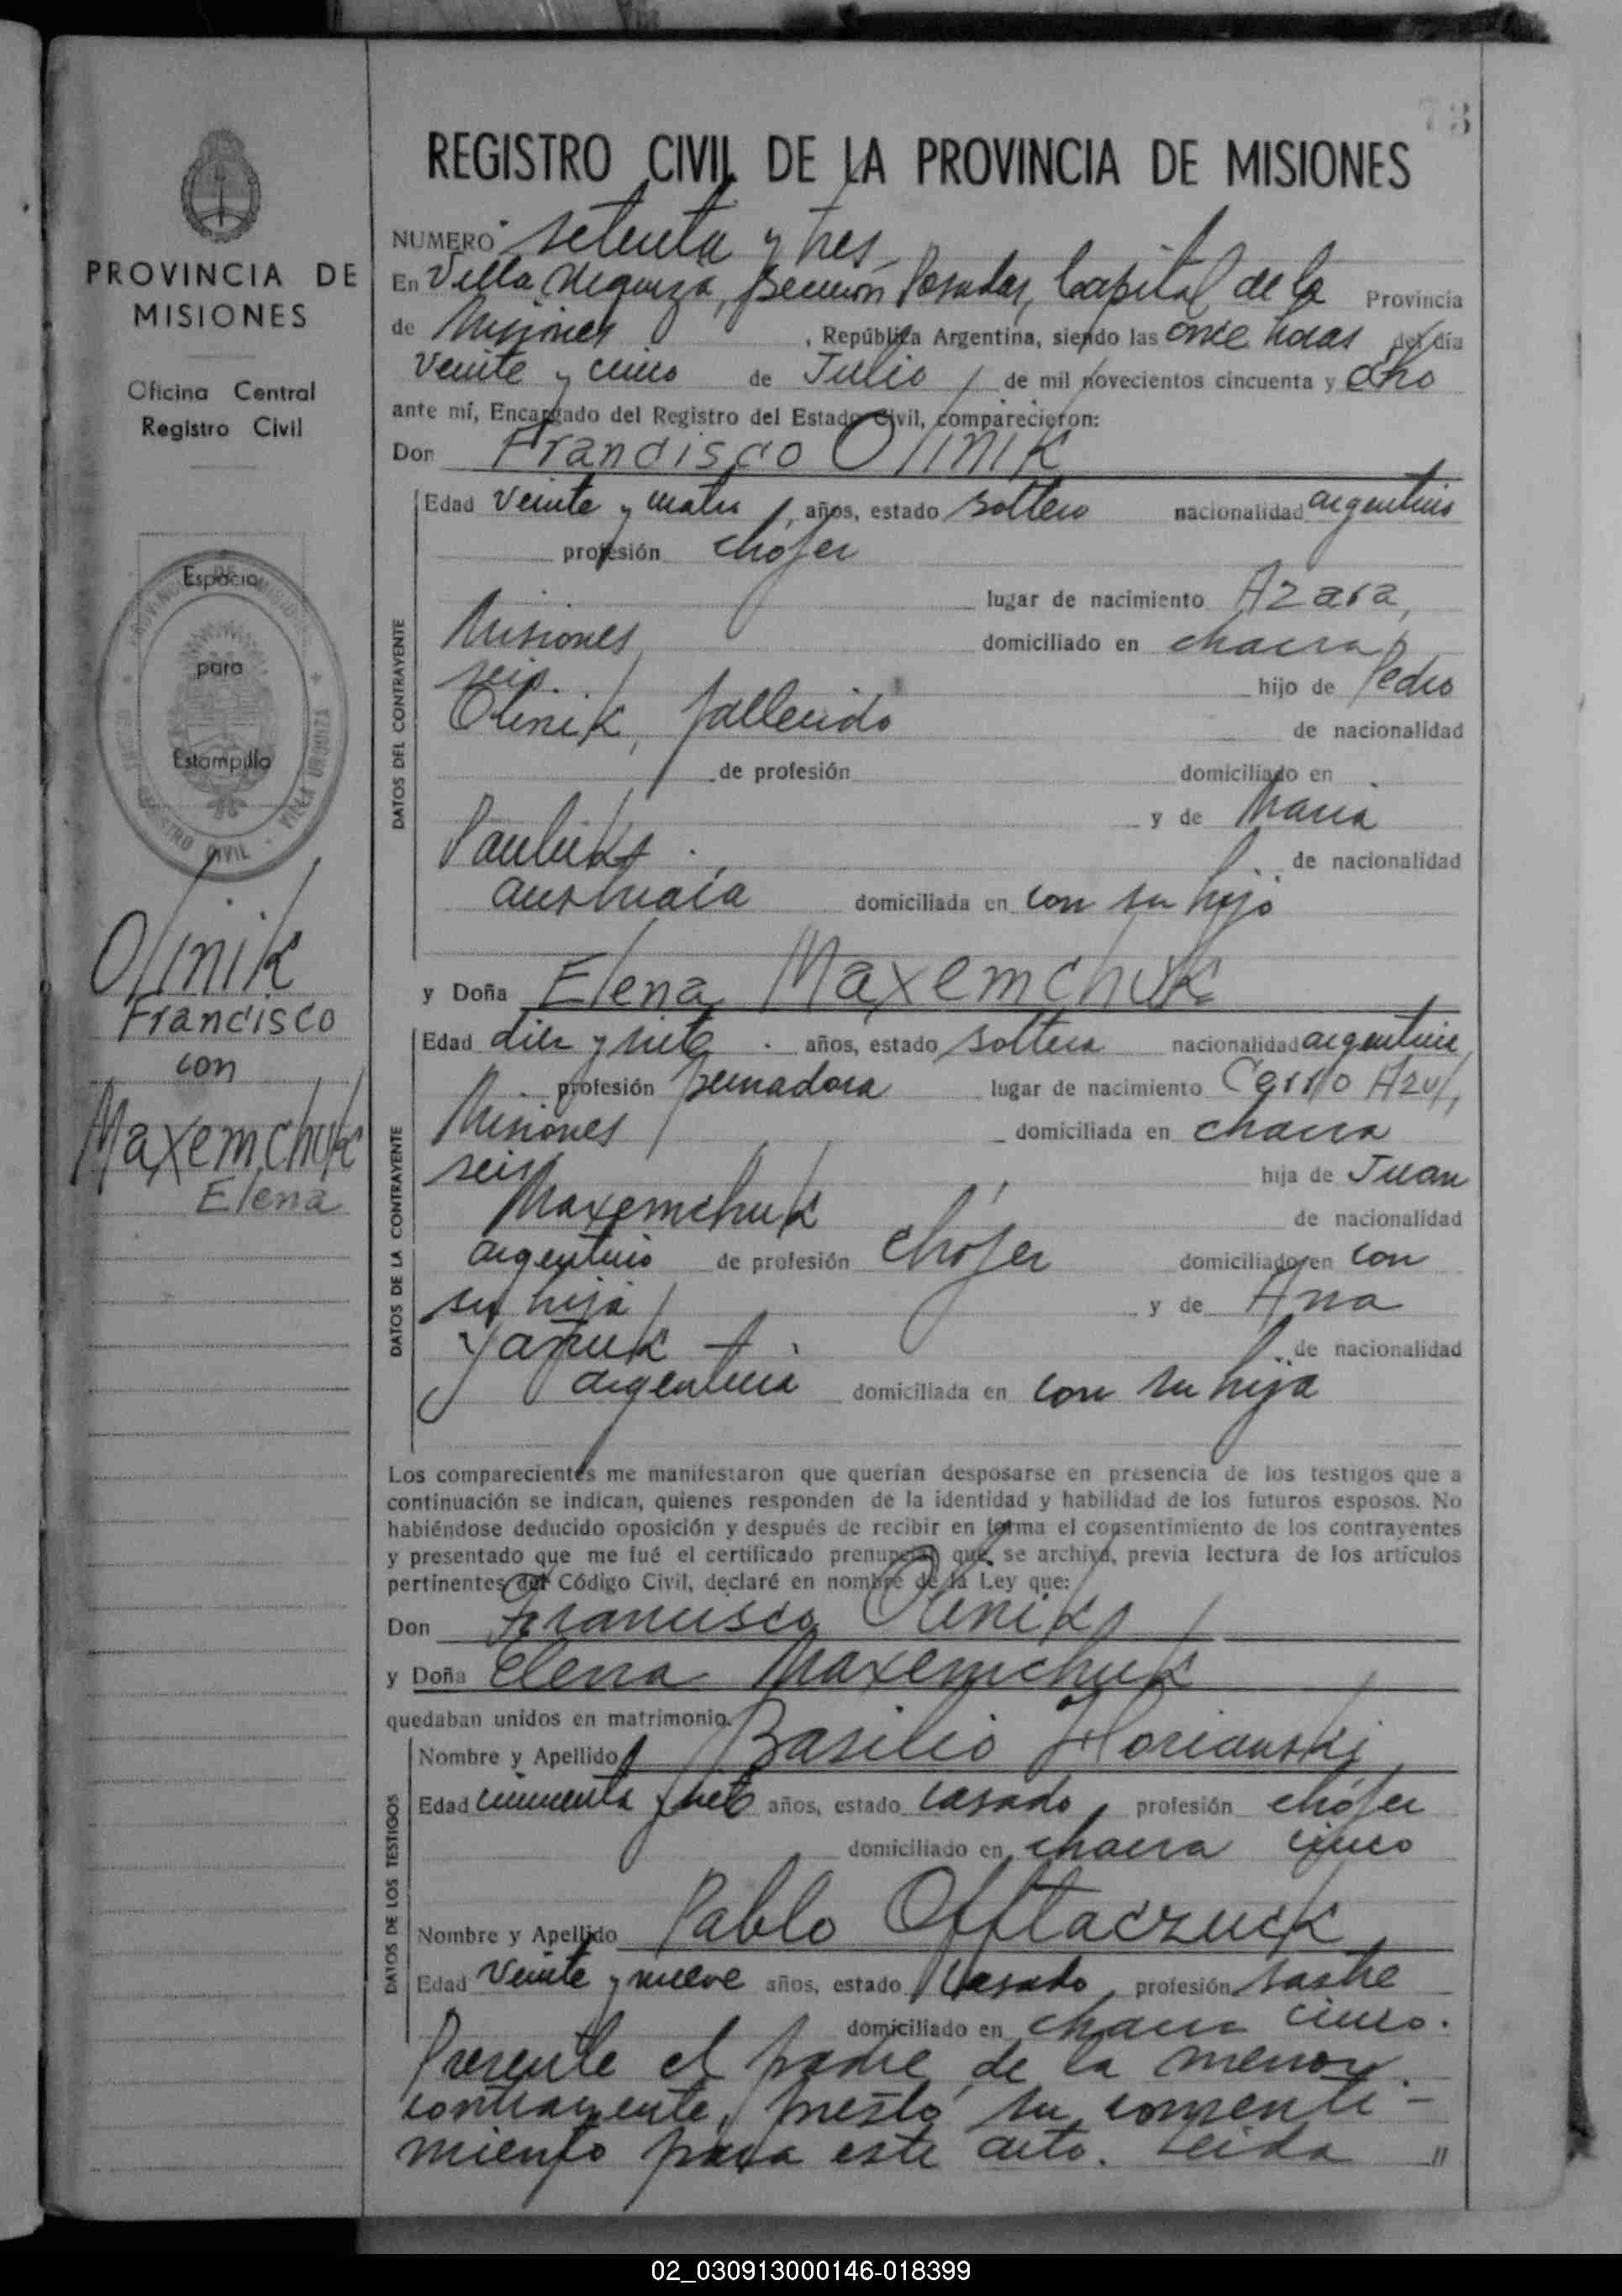 73
REGISTRO CIVIL DE LA PROVINCIA DE MISIONES
PROVINCIA DE
MISIONES
Oficina Central
Registro Civil
Espacio
para
Estampilla
PROVINCIA DE MISIONES
REGISTRO CIVIL - VILLA URQUIZA
Olinik
Francisco
con
Maxemchuk
Elena
NUMERO setenta y tres
En Villa Urquiza, sección Posadas, Capital de la Provincia
de Misiones, República Argentina, siendo las once horas del día
veinte y cinco de Julio de mil novecientos cincuenta y ocho
ante mí, Encargado del Registro del Estado Civil, comparecieron:
Don Francisco Olinik
DATOS DEL CONTRAYENTE
Edad veinte y cuatro, años, estado soltero nacionalidad argentino
profesión chofer
lugar de nacimiento Azara,
Misiones, domiciliado en chacra
seis. hijo de Pedro
Olinik, fallecido de nacionalidad
de profesión domiciliado en
y de Maria
de nacionalidad
austriaca domiciliada en con su hijo
y Doña Elena Maxemchuk
DATOS DE LA CONTRAYENTE
Edad diez y siete años, estado soltera nacionalidad argentina
profesión peinadora lugar de nacimiento Cerro Azul,
Misiones domiciliada en chacra
seis, hija de Juan
Maxemchuk de nacionalidad
argentino de profesión chófer domiciliado en con
su hija y de Ana
de nacionalidad
argentina domiciliada en con su hija
Los comparecientes me manifestaron que querían desposarse en presencia de los testigos que a
continuación se indican, quienes responden de la identidad y habilidad de los futuros esposos. No
habiéndose deducido oposición y después de recibir en forma el consentimiento de los contrayentes
y presentado que me fué el certificado prenupcial que se archiva, previa lectura de los artículos
pertinentes del Código Civil, declaré en nombre de la Ley que:
Don Francisco Olinik
y Doña Elena Maxemchuk
quedaban unidos en matrimonio.
DATOS DE LOS TESTIGOS
Nombre y Apellido Basilio Horianski
Edad cincuenta y siete años, estado casado, profesión chófer
domiciliado en chacra cinco
Nombre y Apellido Pablo Offtaczuck
Edad veinte y nueve años, estado casado, profesión sastre
domiciliado en chacra cinco.
Presente el padre de la menor
contrayente, prestó su consenti-
miento para este acto. Leida //
02_030913000146-018399